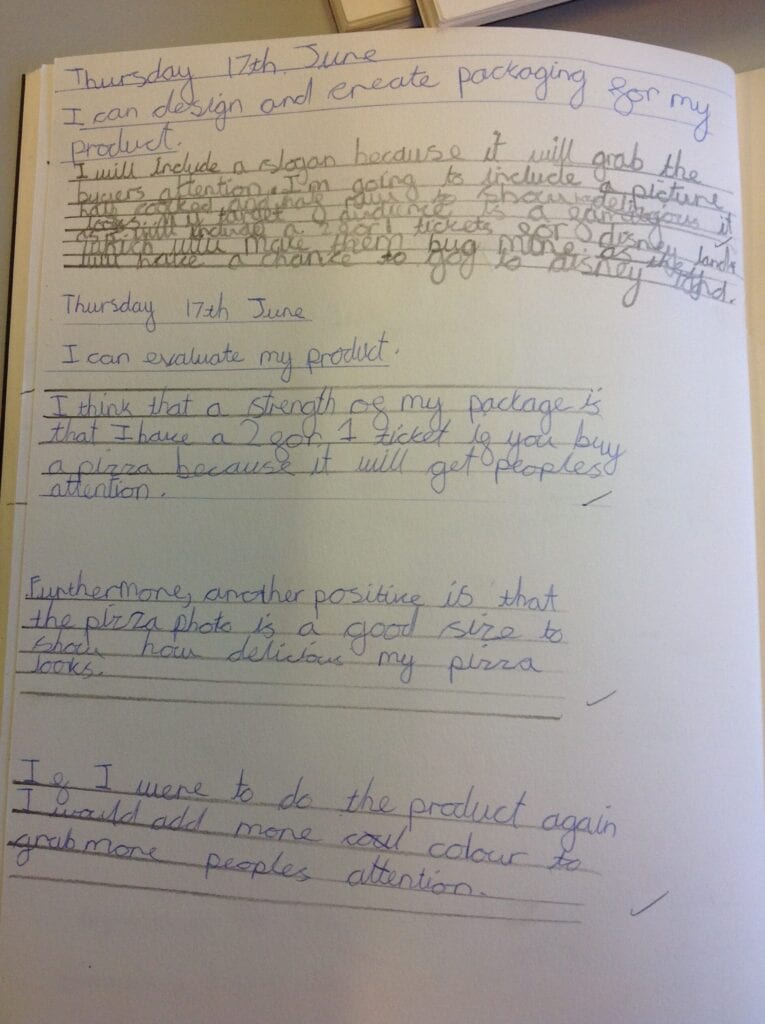 Thursday 17th June
I can design and create packaging for my
product.
I will include a slogan because it will grab the
buyers attention. I'm going to include a picture
half cooked and half raw to show delicious it
looks. My target audience is a family
as I will include a 2 for 1 tickets for disney land
which will make them buy more as they
will have a chance to go to disney land.
Thursday 17th June
I can evaluate my product.
I think that a strength of my package is
that I have a 2 for 1 ticket if you buy
a pizza because it will get peoples
attention.
Furthermore, another positive is that
the pizza photo is a good size to
show how delicious my pizza
looks.
If I were to do the product again
I would add more colour to
grab more peoples attention.